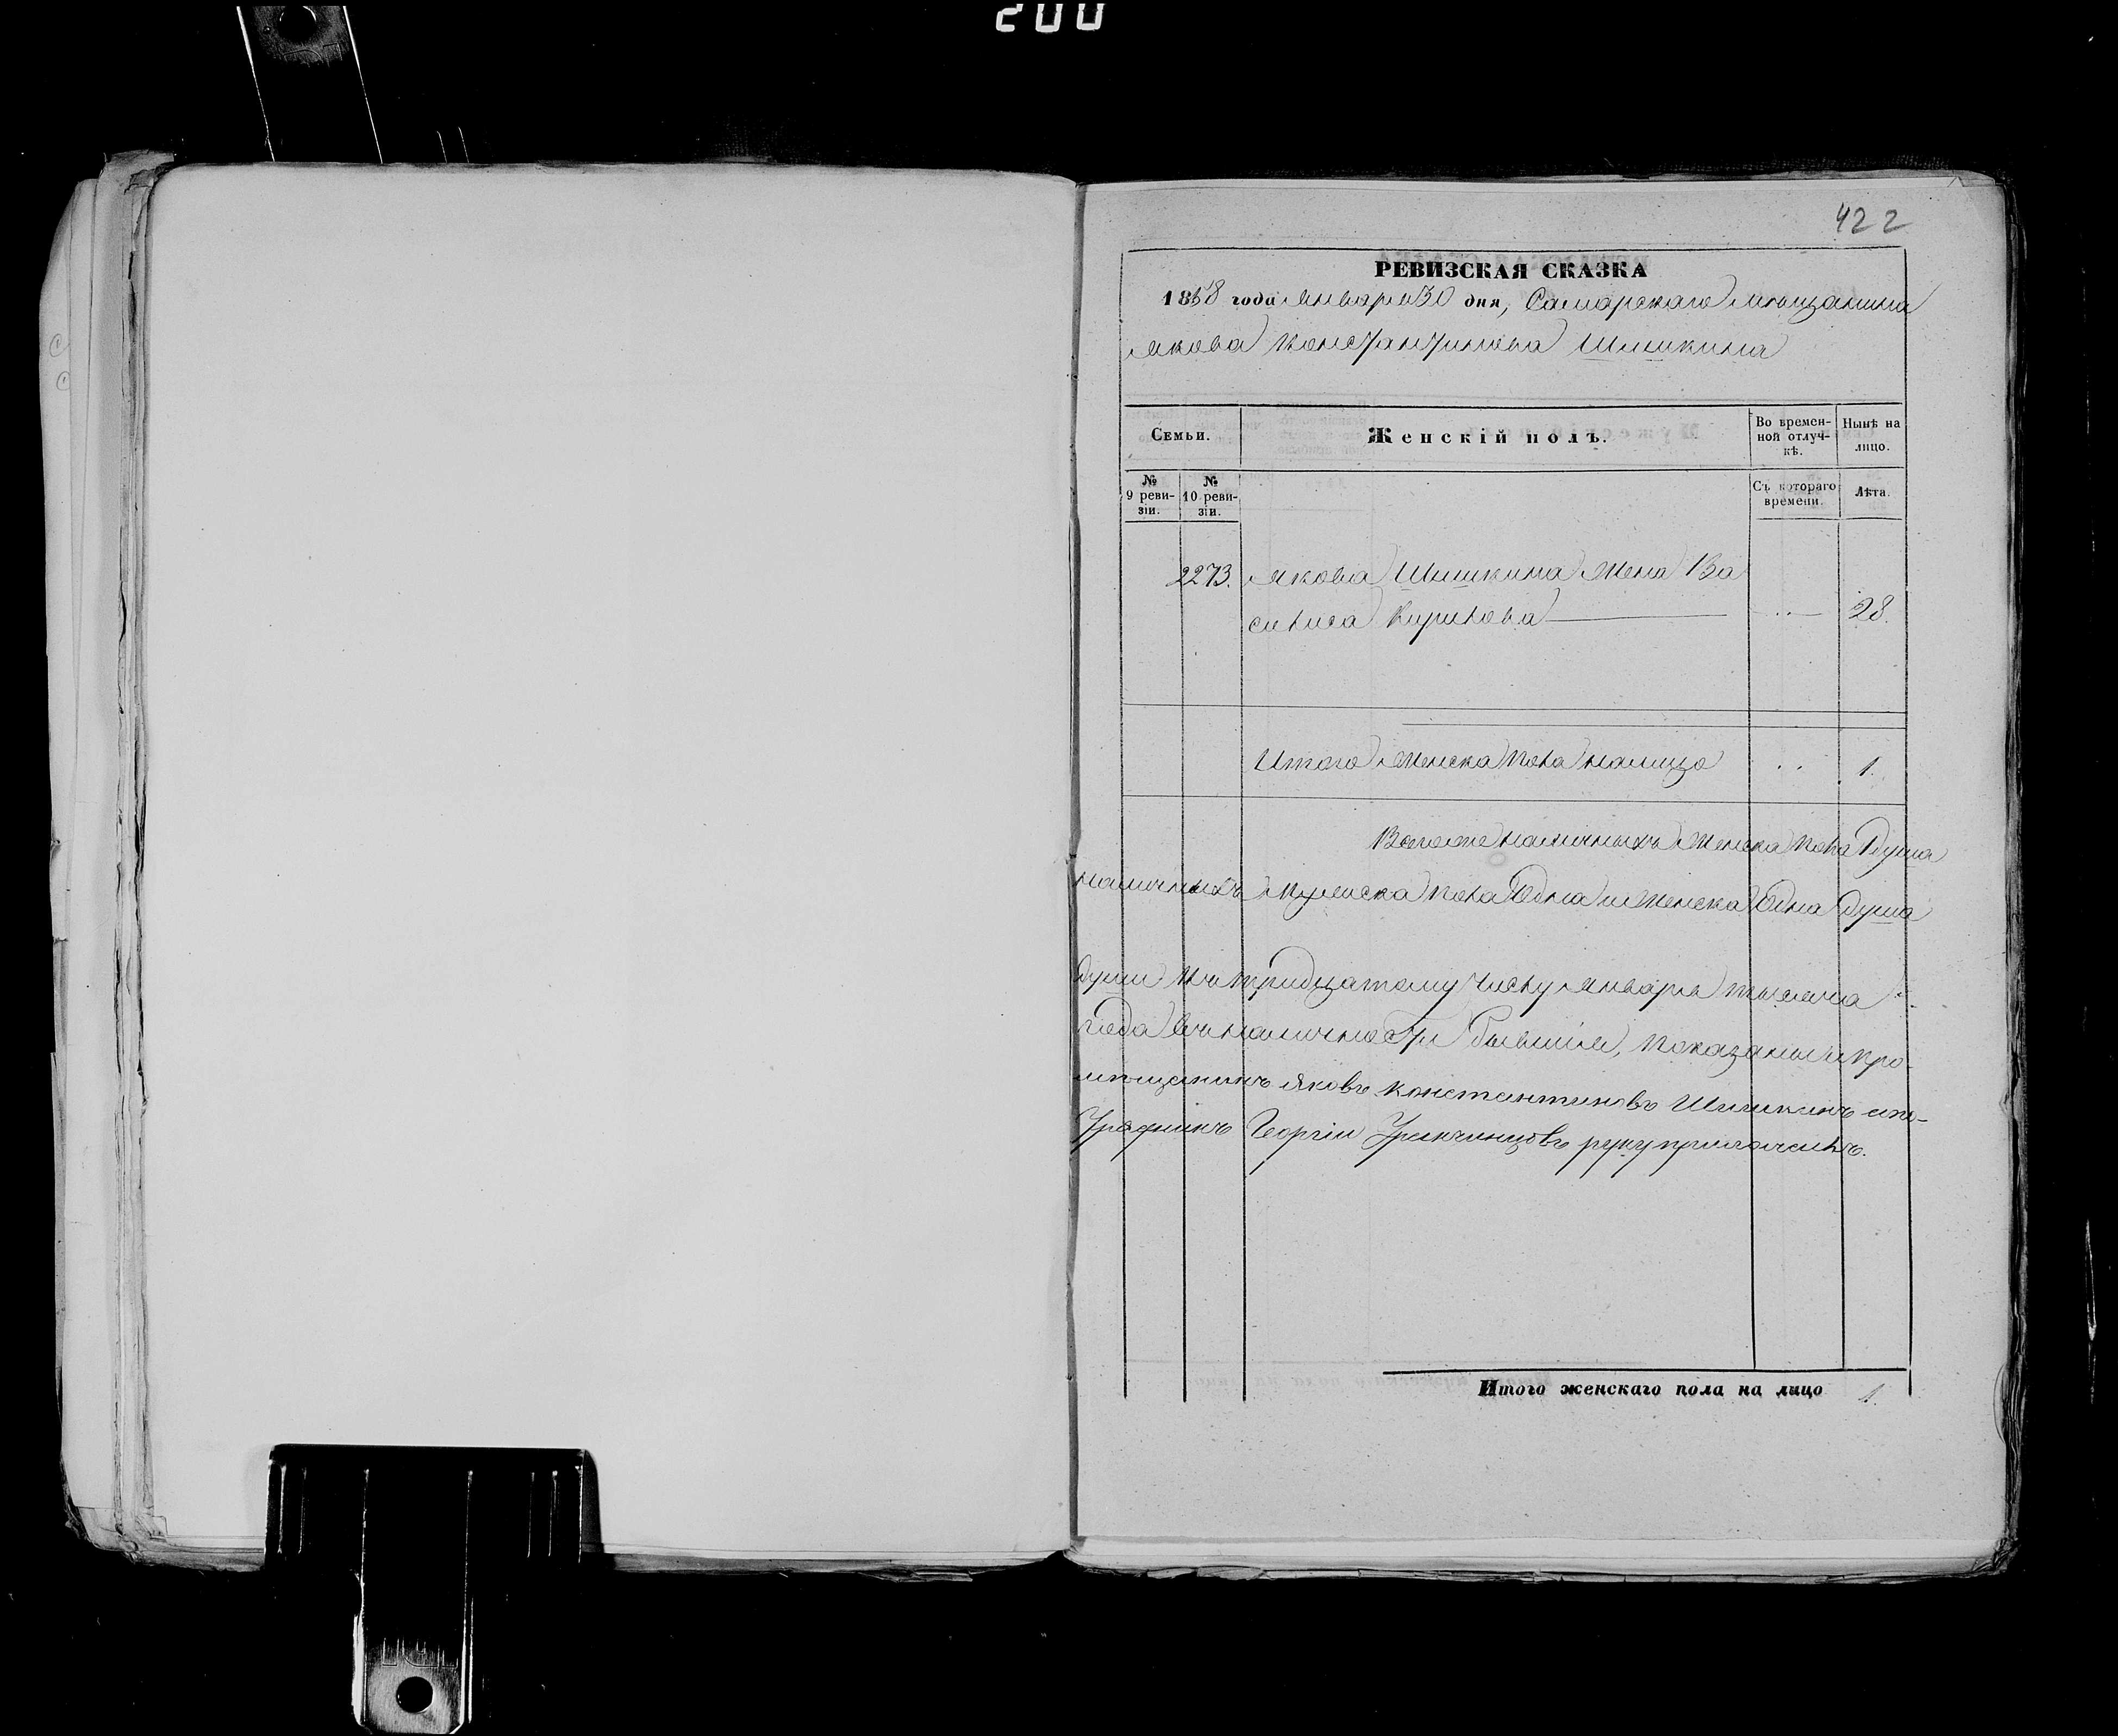 200
422
РЕВИЗСКАЯ СКАЗКА
1858 года Января 30 дня, Самарскаго мѣщанина
Якова Константинова Шишкина
Семьи.
Женскій полъ.
Во времен-
ной отлуч-
кѣ.
Нынѣ на
лицо.
№
9 реви-
зіи.
№
10 реви-
зіи.
Съ котораго
времени.
Лѣта.
2273. Якова Шишкина Жена Ва
силиса Кирилова 28.
Итого Женска пола налицо 1.
наличныхъ Женска пола 1 душа
наличныхъ Мужеска пола Одна и Женска Одна душа
души Къ тридцатому числу Января тысяча
года въ наличности бывшия, показаны и про-
мѣщанинъ Яковъ Константиновъ Шишкинъ
Георгіи руку приложилъ.
Итого женскаго пола на лицо 1.